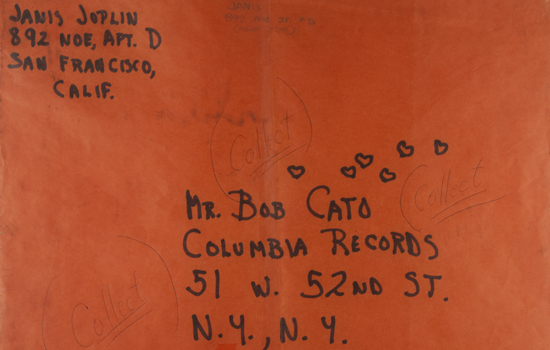 JANIS JOPLIN
892 NOE, APT. D
SAN FRANCISCO,
CALIF.
JANIS
Collect
Collect
MR. BOB CATO
COLUMBIA RECORDS
51 W. 52ND ST.
N.Y., N.Y.
Collect